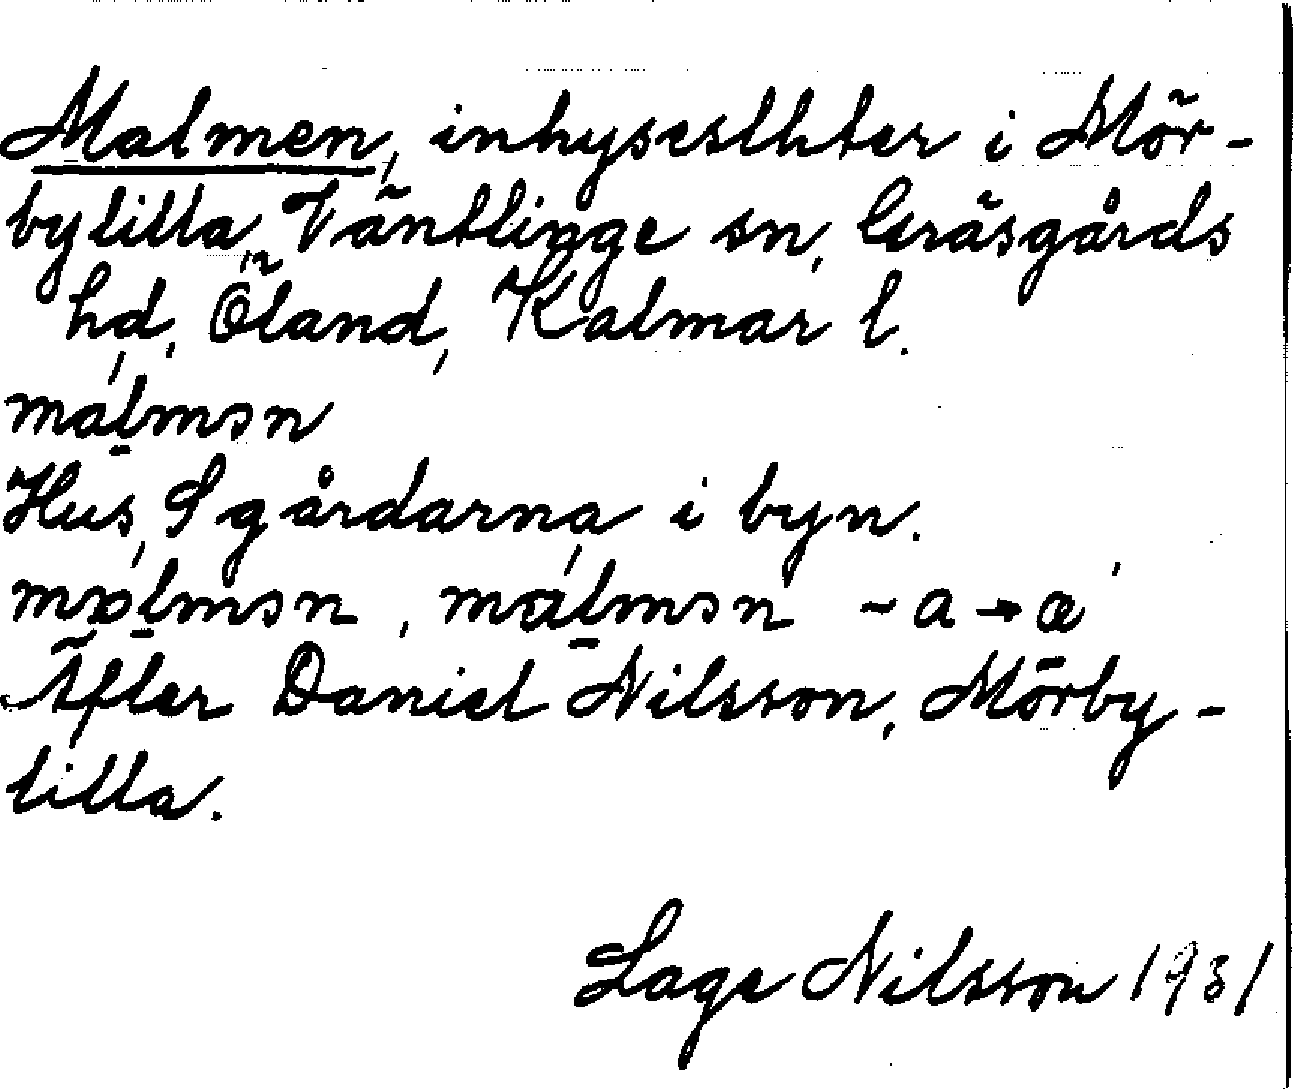 Malmen, inhyseslhter i Mör-
bylilla, Väntlinge sn, Gräsgårds
hd, Öland, Kalmar l.
málmən
Hus, S gårdarna i byn.
mɒ́lmən, málmən - a → æ
Äfter Daniel Nilsson, Mörby-
lilla.
Lage Nilsson 1931